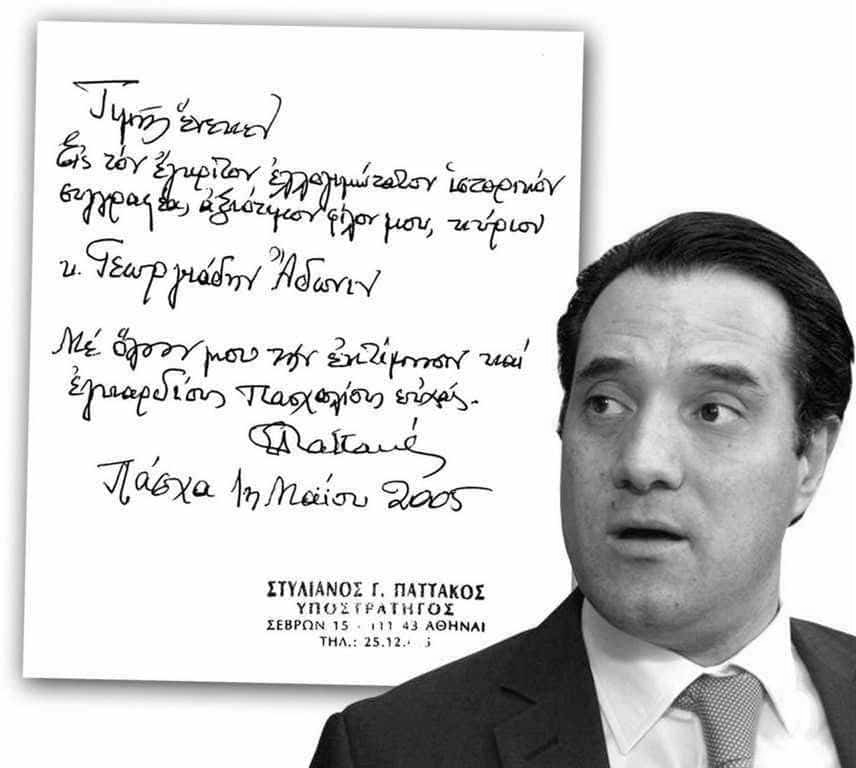 Τιμῆς ἕνεκεν
Εἰς τὸν ἔγκριτον ἐλλογιμώτατον ἱστορικὸν
συγγραφέα, ἀξιότιμον φίλον μου, κύριον
κ. Γεωργιάδην Ἄδωνιν
Μέ ὅλην μου τὴν ἐκτίμησιν καί
ἐγκαρδίους πασχαλίους εὐχάς.
ΣΠαττακός
Πάσχα 1η Μαΐου 2005
ΣΤΥΛΙΑΝΟΣ Γ. ΠΑΤΤΑΚΟΣ
ΥΠΟΣΤΡΑΤΗΓΟΣ
ΣΕΒΡΩΝ 15 - 111 43 ΑΘΗΝΑΙ
ΤΗΛ.: 25.12.